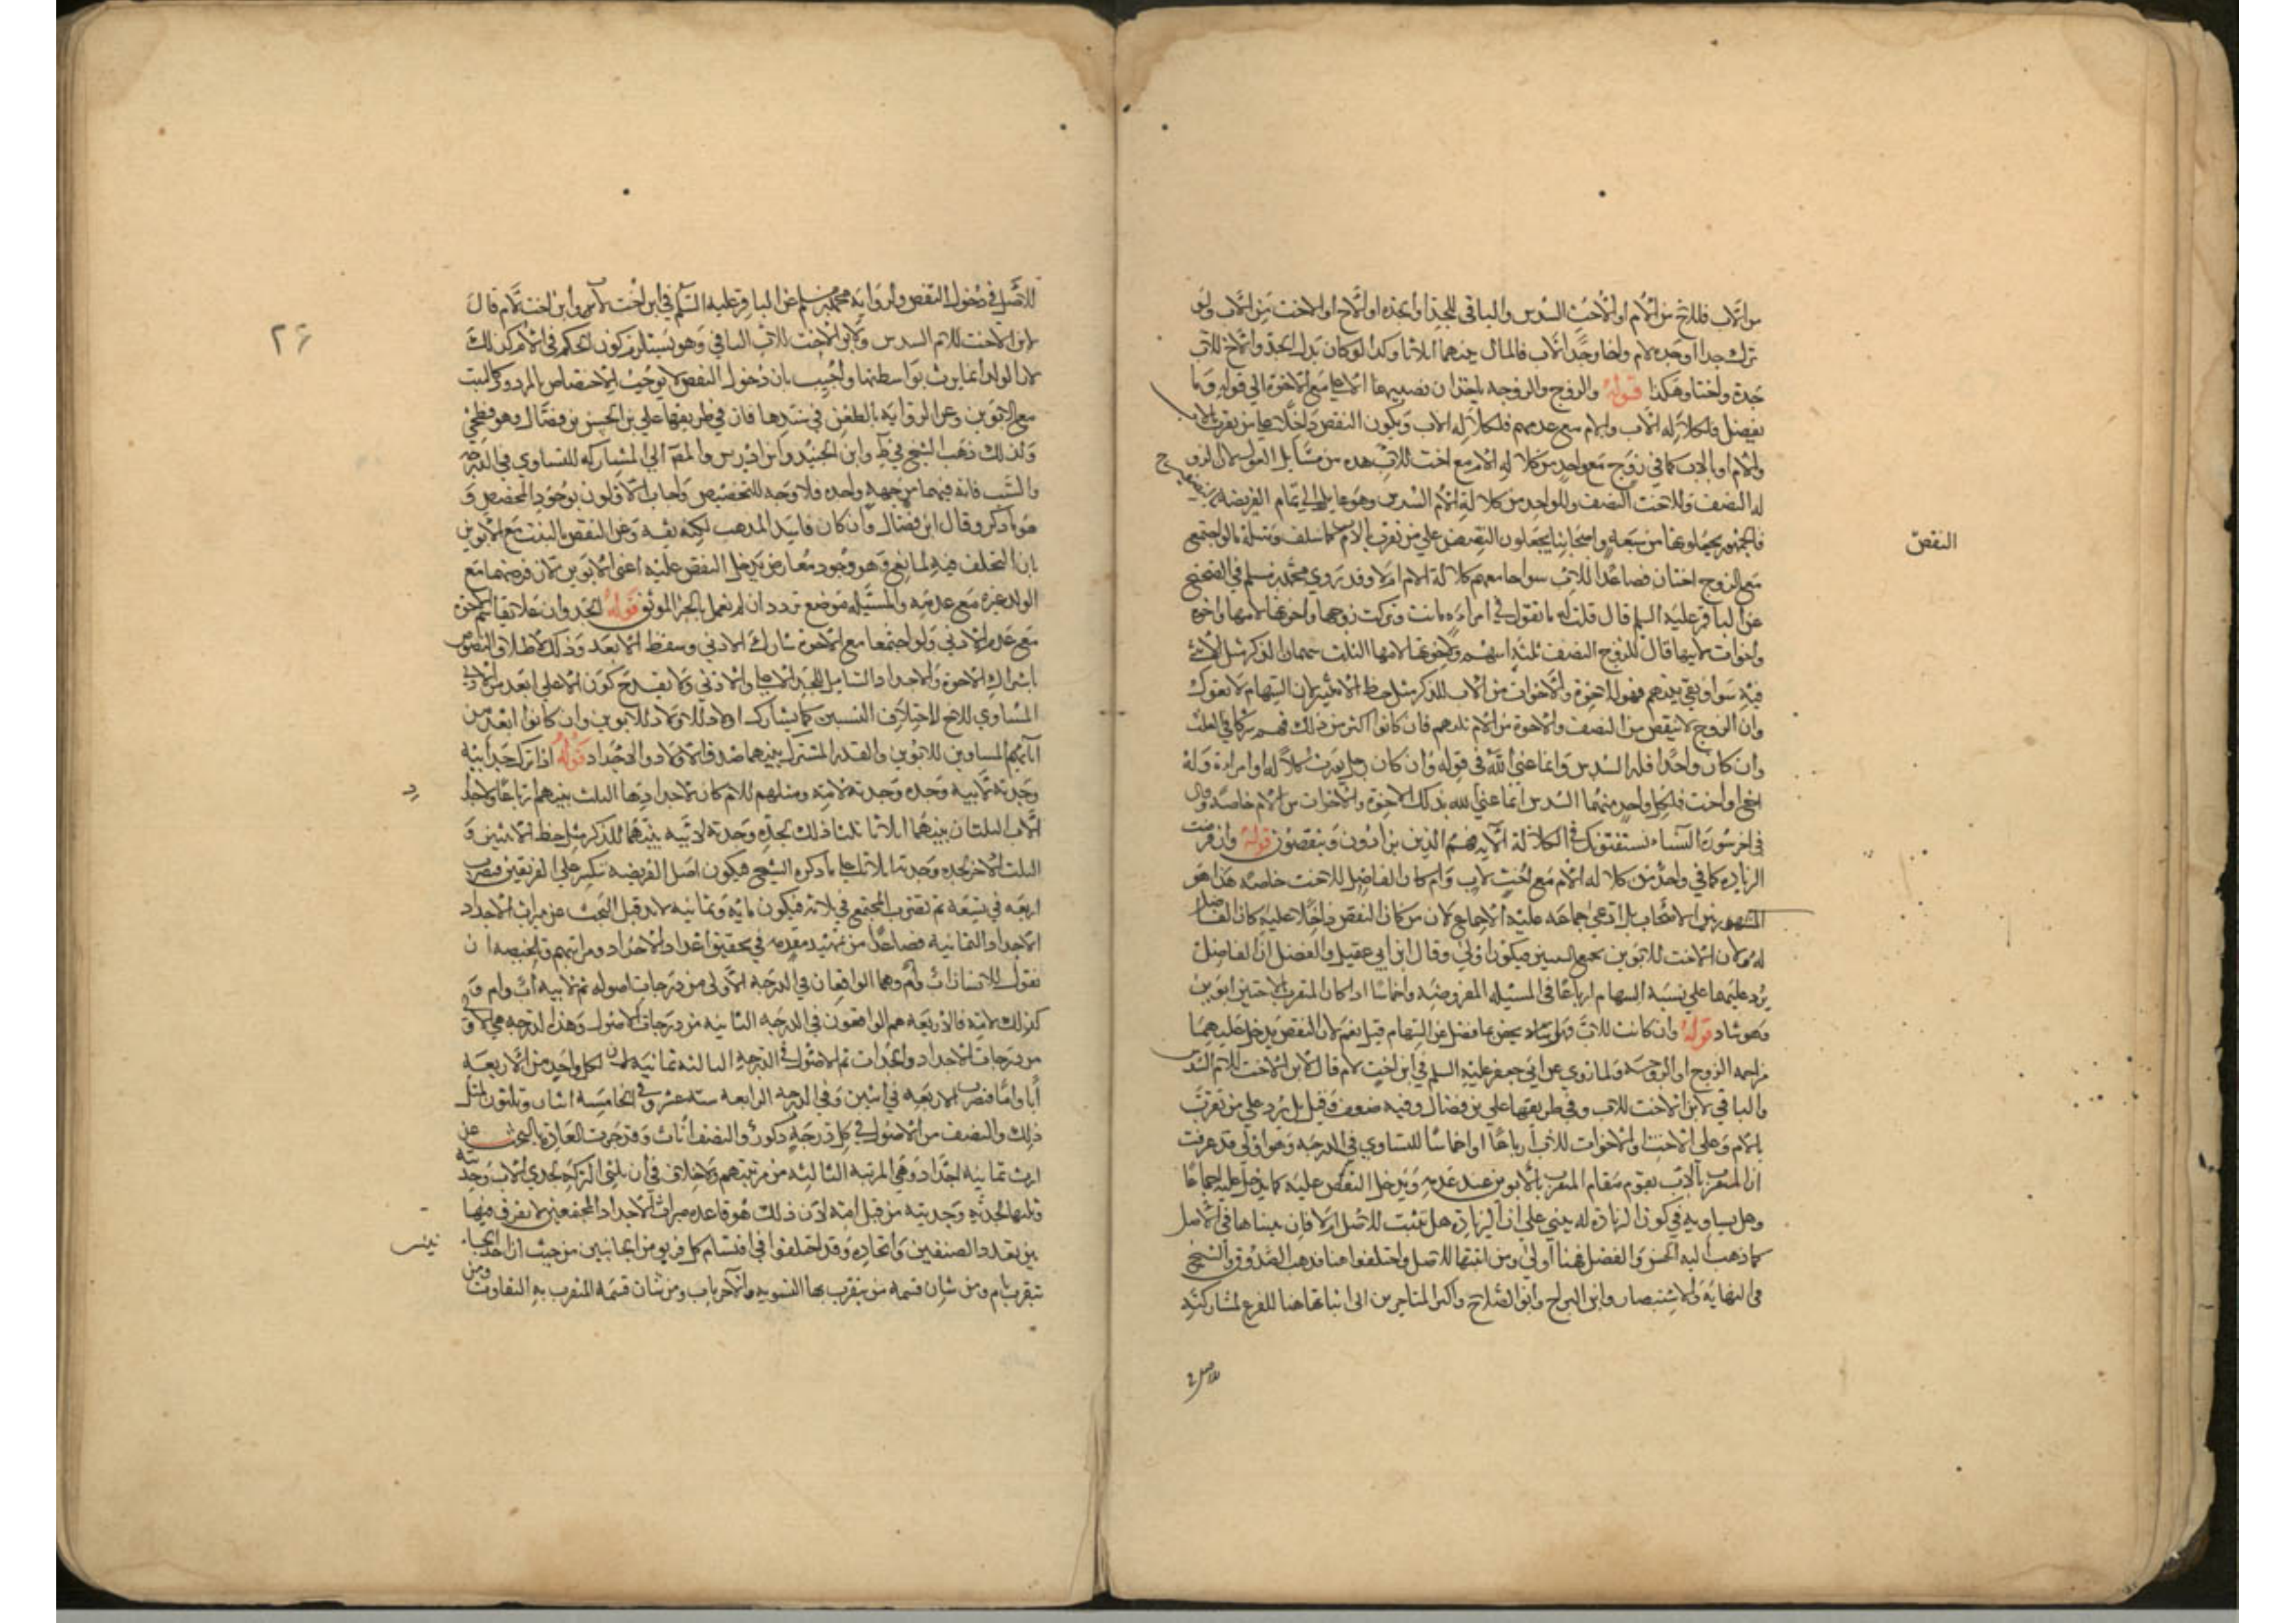 من الاب فللاخ من الام او الاخت السدس والباقي للجد او الجده او الاخ او الاخت من الاب ولو
ترك جدا او جده لام واخا وجدا لاب فالمال بينهما اثلاثا وكذا لو كان بدل الجد والاخ للاب
جدة واختا وهكذا قوله والزوج والزوجه ياخذان نصيبهما الاعلى مع الاخوة الى قوله وما
يفضل فلكلالة الاب والام مع عدمهم فلكلاله الاب ويكون النقص داخلا على من يتقرب بالاب
والام او بالاب كما في زوج مع واحد من كلاله الام مع اخت للاب هذه من مسايل العول لان الزوج
له النصف وللاخت النصف وللواحد من كلالة الام السدس وهو عايل الى تمام الفريضة
فالجمهور يجعلونها من سبعه واصحابنا يجعلون النقص على من تقرب بالاب كما سلف ومثله ما لو اجتمع
مع الزوج اختان فصاعدا للاب سوا جامعهم كلالة الام ام لا وقد روي محمد بن مسلم في الصحيح
عن الباقر عليه السلم قال قلت له ما تقول في امراءه ماتت وتركت زوجها واخوتها لامها واخوه
واخوات لابيها قال للزوج النصف ثلثه اسهم ولاخوتها لامها الثلث سهمان الذكر مثل الانثى
فيه سوا وبقي سهم فهو للاخوة والاخوات من الاب للذكر مثل حظ الانثيين لان السهام لا تعول
وان الزوج لا ينقص من النصف والاخوة من الام ثلثهم فان كانوا اكثر من ذلك فهم شركا في الثلث
وان كان واحدا فله السدس وانما عنى الله في قوله وان كان رجل يورث كلالة او امراءة وله
اخ او اخت فلكل واحد منهما السدس انما عنى الله بذلك الاخوة والاخوات من الام خاصة وقال
في اخر سورة النساء يستفتونك في الكلالة الآيه فهم الذين يزادون وينقصون قوله وان فرضت
الزياده كما في واحد من كلاله الام مع اخت لاب وام كان الفاضل للاخت خاصه هذا هو
المشهور بين الاصحاب بل ادعى جماعه عليه الاجماع لان من كان النقص داخلا عليه كان الفاضل
له ولان الاخت للابوين تجمع السببين فيكون اولى وقال ابن ابي عقيل والفضل ان الفاضل
يرد عليهما على نسبة السهام ارباعا في المسئله المفروضه واخماسا اذا كان المتقرب اختين ابوين
وهو شاذ قوله وان كانت للاب يخص بما فضل عن السهام قيل نعم لان النقص يدخل عليهما
مزاحمة الزوج او الزوجة ولما روي عن ابي جعفر عليه السلم في ابن اخت لام قال لابن الاخت للام السدس
والباقي لابن الاخت للاب وفي طريقها علي بن فضال وفيه ضعف وقيل بل يرد على من تقرب
بالام وعلى الاخت او الاخوات للاب ارباعا او اخماسا للتساوي في الدرجه وهو اولى قد عرفت
ان المتقرب بالاب يقوم مقام المتقرب بالابوين عند عدمه ويدخل النقص عليه كما يدخل عليه اجماعا
وهل يساويه في كون الزيادة له يبني على ان الزيادة هل تثبت للاصل ام لا فان منعناها في الاصل
كما ذهب اليه الحسن والفضل فهنا اولى ومن اثبتها للاصل واختلفوا هنا فذهب الصدوق والشيخ
في النهاية والاستبصار وابن البراج وابو الصلاح واكثر المتاخرين الى اثباتها هنا للفرع لمشاركته
للاصل
النقص
للاصل في دخول النقص ولرواية محمد بن مسلم عن الباقر عليه السلم في ابن اخت لاب وابن اخت لام قال
لابن الاخت للام السدس ولابن الاخت للاب الباقي وهو يستلزم كون الحكم في الام كذلك
لان الولد انما يرث بواسطتها واجيب بان دخول النقص لا يوجب الاختصاص بالمردود كالبنت
مع الابوين وعن الرواية بالطعن في سندها فان في طريقها علي بن الحسن بن فضال وهو فطحي
ولذلك ذهب الشيخ في ط وابن الجنيد وابن ادريس والمص الى المشاركه للتساوي في الدرجه
والسبب فانه فيهما من جهة واحده فلا وجه للتخصيص واجاب الاولون بوجود المخصص و
هو ما ذكر وقال ابن فضال وان كان فاسد المذهب لكنه ثقه وعن النقص بالبنت مع الابوين
بان التخلف فيه لمانع وهو وجود معارض يدخل النقص عليه اعني الابوين لان فرضهما مع
الولد غيره مع عدمه والمسئله موضع تردد ان لم نعمل بالخبر الموثق قوله الجد وان علا يقاسم الاخوة
مع عدم الادنى ولو اجتمعا مع الاخوة شارك الادنى وسقط الابعد وذلك لاطلاق النصوص
باشتراك الاخوة والاجداد الشامل للجد الاعلى والادنى ولا يقدح كون الاعلى ابعد من الادنى
المساوي للاخ لاختلاف النسبين كما يشارك اولاد الاولاد للابوين وان كانوا ابعد من
آبائهم المساوين للابوين والقدر المشترك بينهما صدق الاولاد والاجداد قوله اذا ترك جد ابيه
وجدته لابيه وجده وجدته لامه ومثلهم للام كان لاجداد امها الثلث بينهم ارباعا ولاجداد
الاب الثلثان بينهما اثلاثا ثلثا ذلك لجده وجدته لابيه بينهما للذكر مثل حظ الانثيين و
الثلث الاخر لجده وجدته اثلاثا على ما ذكره الشيخ فيكون اصل الفريضه تنكسر على الفريقين فتضرب
اربعه في تسعة ثم تضرب المجتمع في ثلاثه فيكون مايه وثمانيه لابد قبل البحث عن ميراث الاجداد
الاجداد الثمانيه فصاعدا من تمهيد مقدمه في تحقيق اعداد الاجداد ومراتبهم وتلخيصه ان
نقول للانسان اب وام وهما الواقعان في الدرجه الاولى من درجات اصوله ثم لابيه اب وام و
كذلك لامه فالاربعه هم الواقعون في الدرجه الثانيه من درجات الاصول وهذه الدرجه هي الاولى
من درجات الاجداد والجدات ثم الاصول في الدرجة الثالثه ثمانيه لان لكل واحد من الاربعه
أبا واما فتضرب الاربعه في اثنين وفي الدرجه الرابعه سته عشر وفي الخامسه اثنان وثلثون لمثل
ذلك والنصف من الاصول في كل درجة ذكور والنصف اناث وقد جرت العادة بالبحث عن
ارث ثمانيه اجداد وهي المرتبه الثانيه من مرتبتهم ولا خلاف في ان ثلثي التركة لجدي الاب وجدتيه
وثلثها لجديه وجدتيه من قبل امه لان ذلك هو قاعدة ميراث الاجداد المجتمعين لا يفرق فيها
بين تعدد الصنفين واتحاده وقد اختلفوا في اقتسام كل فريق من الجانبين من حيث ان احد الجهات
تتقرب بام ومن شان قسمه من يتقرب بها التسويه والآخر باب ومن شان قسمة المتقرب به التفاوت
٢٦